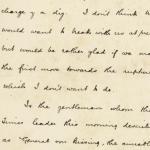 charge y a dig. I don't think th
would want to break with us at pre
but would be rather glad if we ma
the first move towards the rupture
which I don't want to do.
To the gentleman whom the
Times leader this morning descri
as "General von Bissing, the amiable